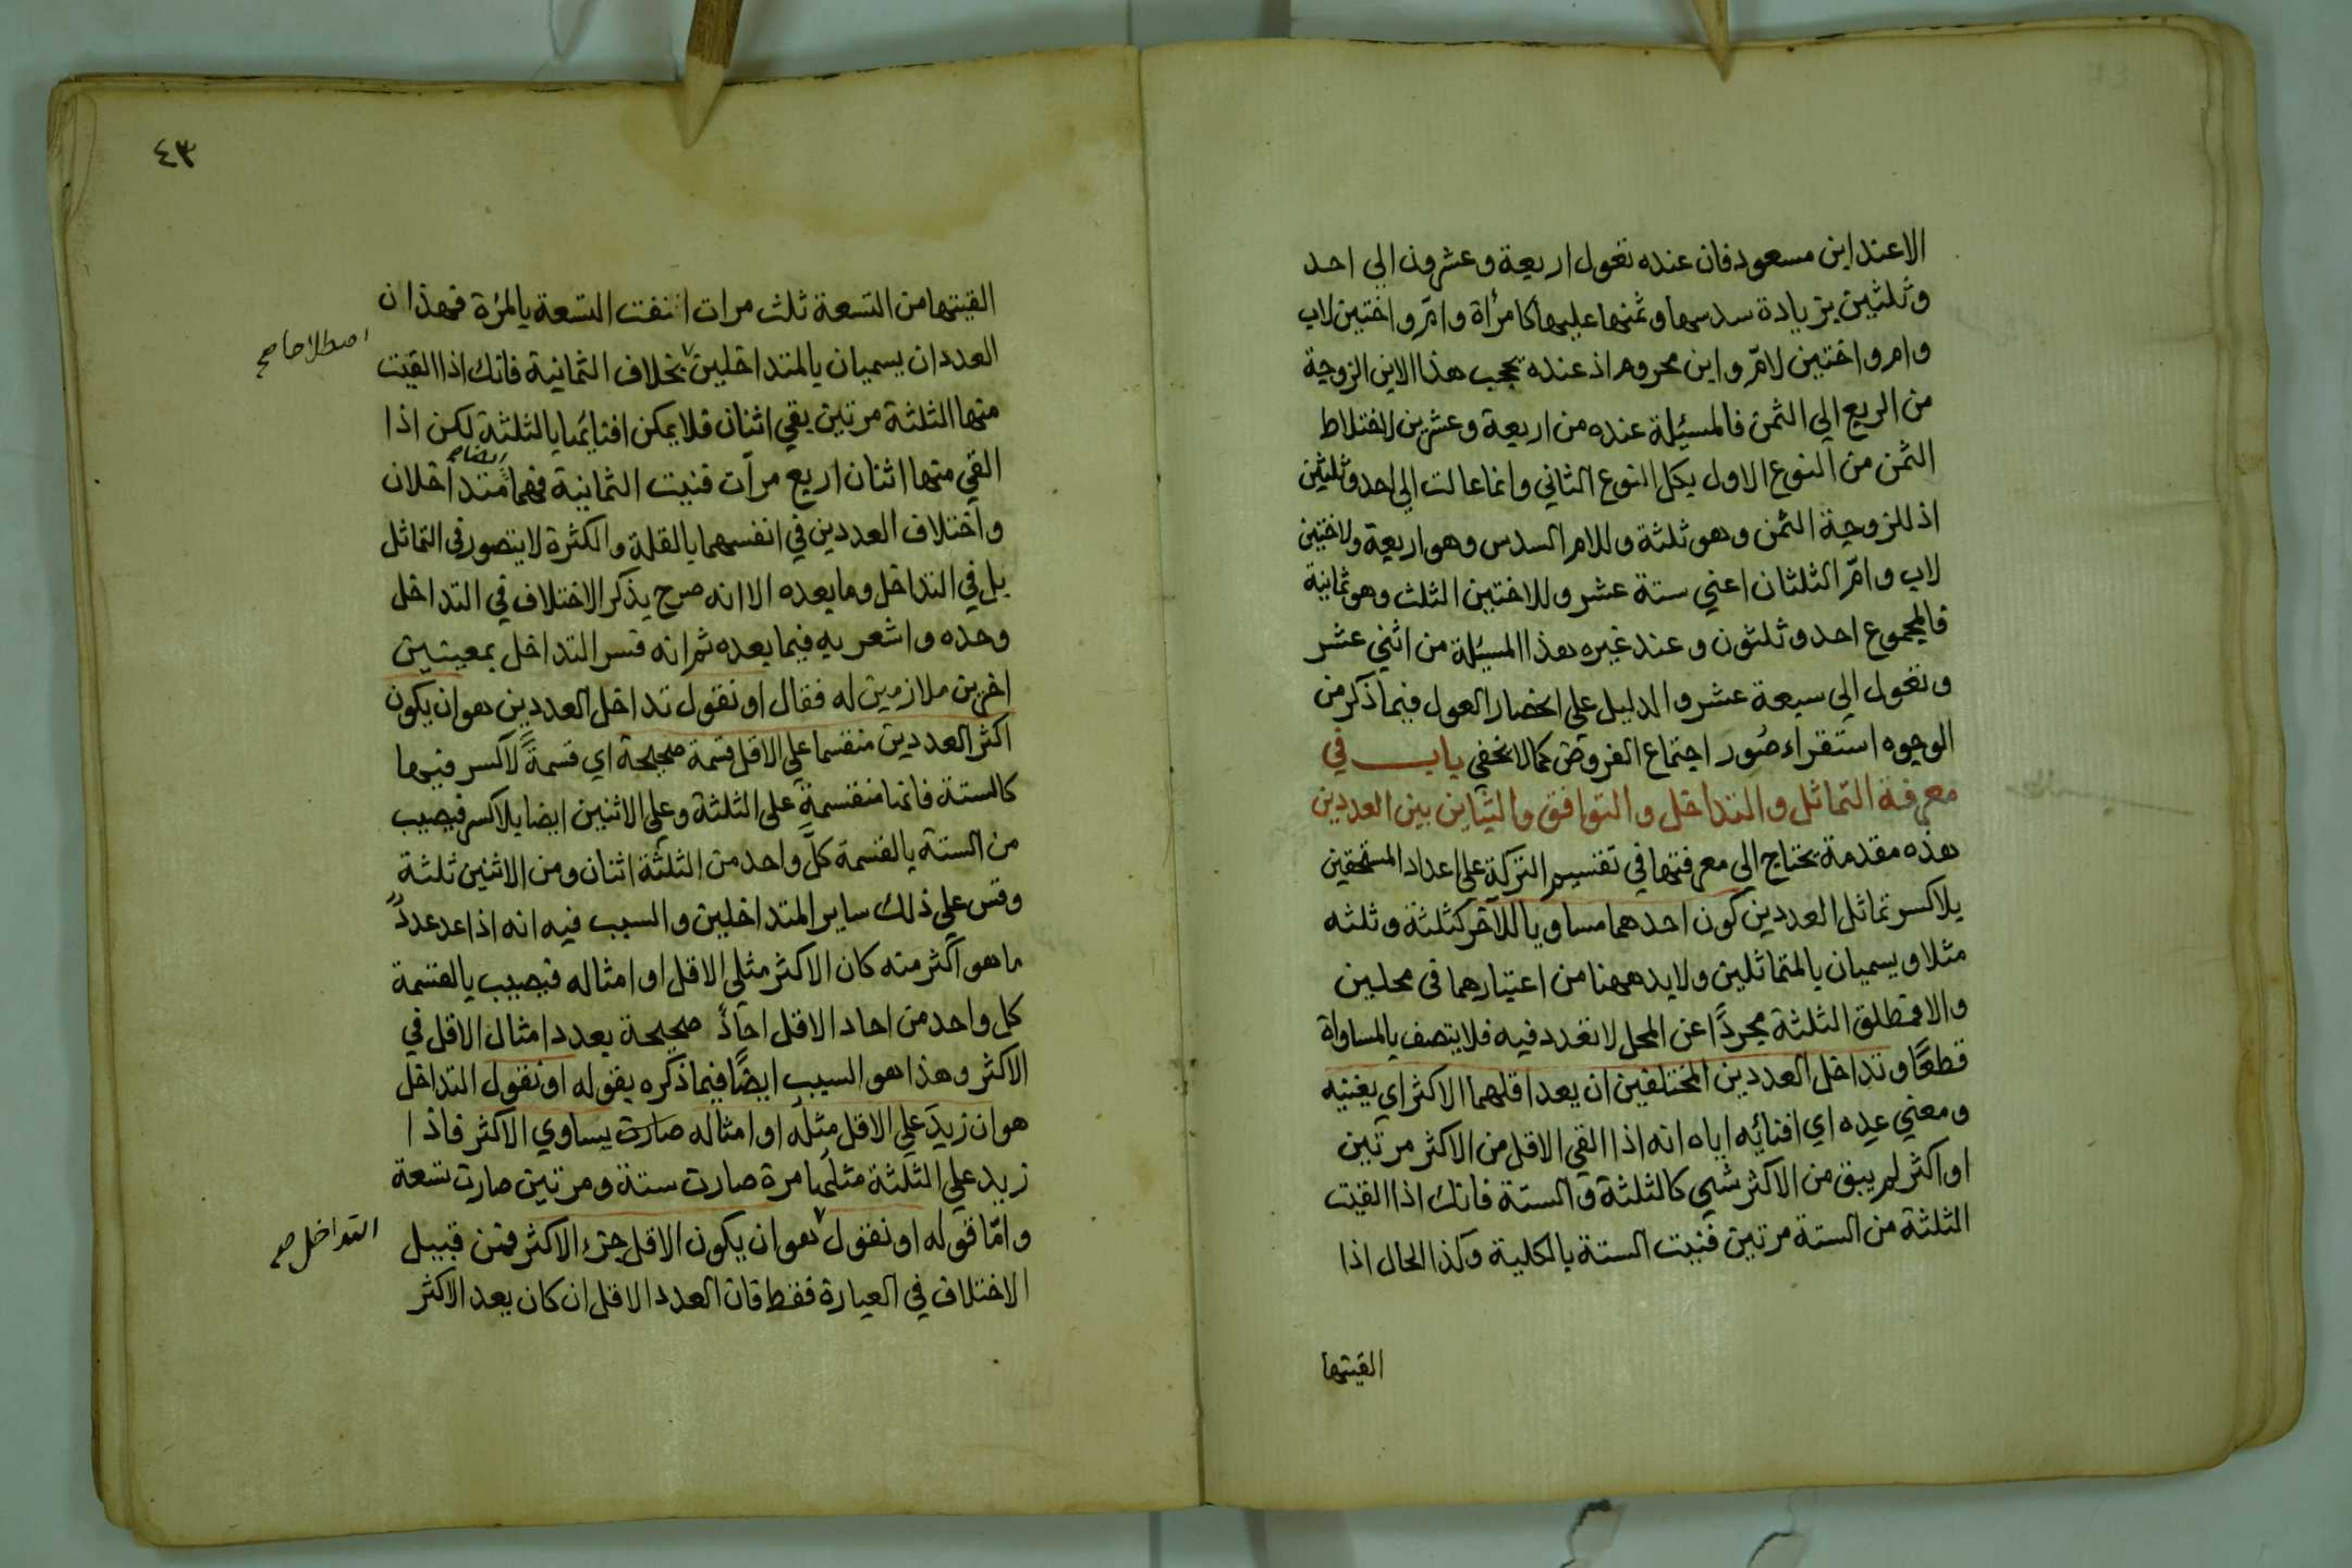 الا عند ابن مسعود فان عنده تعول اربعة وعشرون الي احد
وثلثين بزيادة سدسها وثمنها عليها كامرأة وامّ واختين لاب
وام واختين لامّ وابن محروم اذ عنده يحجب هذا الابن الزوجة
من الربع الي الثمن فالمسئلة عنده من اربعة وعشرين لاختلاط
الثمن من النوع الاول بكل النوع الثاني وانما عالت الي احد وثلثين
اذ للزوجة الثمن وهو ثلثة وللام السدس وهو اربعة ولاختين
لاب وامّ الثلثان اعني ستة عشر وللاختين الثلث وهو ثمانية
فالمجموع احد وثلثون وعند غيره هذا المسئلة من اثني عشر
وتعول الي سبعة عشر والدليل علي انحصار العول فيما ذكر من
الوجوه استقراء صُور اجتماع الفروض كما لا يخفي باب في
معرفة التماثل والتداخل والتوافق والتباين بين العددين
هذه مقدمة يحتاج الي معرفتها في تقسيم التركة علي اعداد المستحقين
بلا كسر تماثل العددين كون احدهما مساويا للآخر كثلثة وثلثه
مثلا ويسميان بالمتماثلين ولابد ههنا من اعتبارهما في محلين
والا فمطلق الثلثة مجردًا عن المحل لا تعدد فيه فلا يتصف بالمساواة
قطعًا وتداخل العددين المختلفين ان يعد اقلهما الاكثر اي يفنيه
ومعني عده اي افنائه اياه انه اذا القي الاقل من الاكثر مرتين
او اكثر لم يبق من الاكثر شي كالثلثة والستة فانك اذا القيت
الثلثة من الستة مرتين فنيت الستة بالكلية وكذا الحال اذا
القيتها
٤٣
القيتها من التسعة ثلث مرات انتفت التسعة بالمرّة فهذان
العددان يسميان بالمتداخلين بخلاف الثمانية فانك اذا القيت
اصطلاحا صح
منها الثلثة مرتين بقي اثنان فلا يمكن افنائها بالثلثة لكن اذا
ايضا صح
القي منها اثنان اربع مرآت فنيت الثمانية فهما متداخلان
واختلاف العددين في انفسهما بالقلة والكثرة لا يتصور في التماثل
بل في التداخل وما بعده الا انه صرح بذكر الاختلاف في التداخل
وحده واشعر به فيما بعده ثم انه فسر التداخل بمعنيين
اخرين ملازمين له فقال او نقول تداخل العددين هو ان يكون
اكثر العددين منقسما علي الاقل قسمة صحيحة اي قسمةً لا كسر فيها
كالستة فانها منقسمة علي الثلثة وعلي الاثنين ايضا بلا كسر فيصيب
من الستة بالقسمة كلَّ واحد من الثلثة اثنان ومن الاثنين ثلثة
وقس علي ذلك ساير المتداخلين والسبب فيه انه اذا عد عددٌ
ما هو اكثر منه كان الاكثر مثلي الاقل او امثاله فيصيب بالقسمة
كل واحد من احاد الاقل احادٌ صحيحة بعدد امثال الاقل في
الاكثر وهذا هو السبب ايضًا فيما ذكره بقوله او نقول التداخل
هو ان زيد علي الاقل مثله او امثاله صارت يساوي الاكثر فاذا
زيد علي الثلثة مثلها مرة صارت ستة ومرتين صارت تسعة
وامّا قوله او نقول هو ان يكون الاقل جزء الاكثر فمن قبيل
التداخل صح
الاختلاف في العبارة فقط فان العدد الاقل ان كان يعد الاكثر